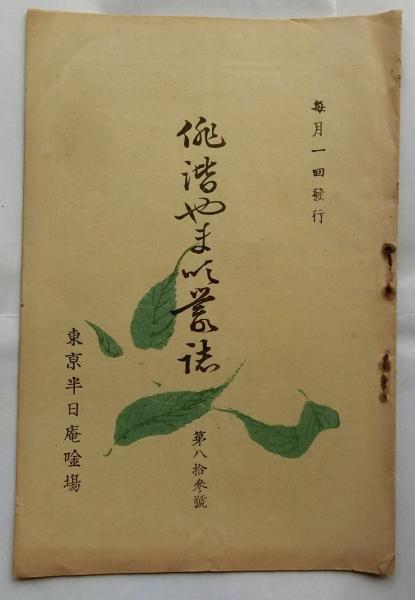 毎月一回發行
俳諧やまと叢誌
第八拾參號
東京半日庵唫場